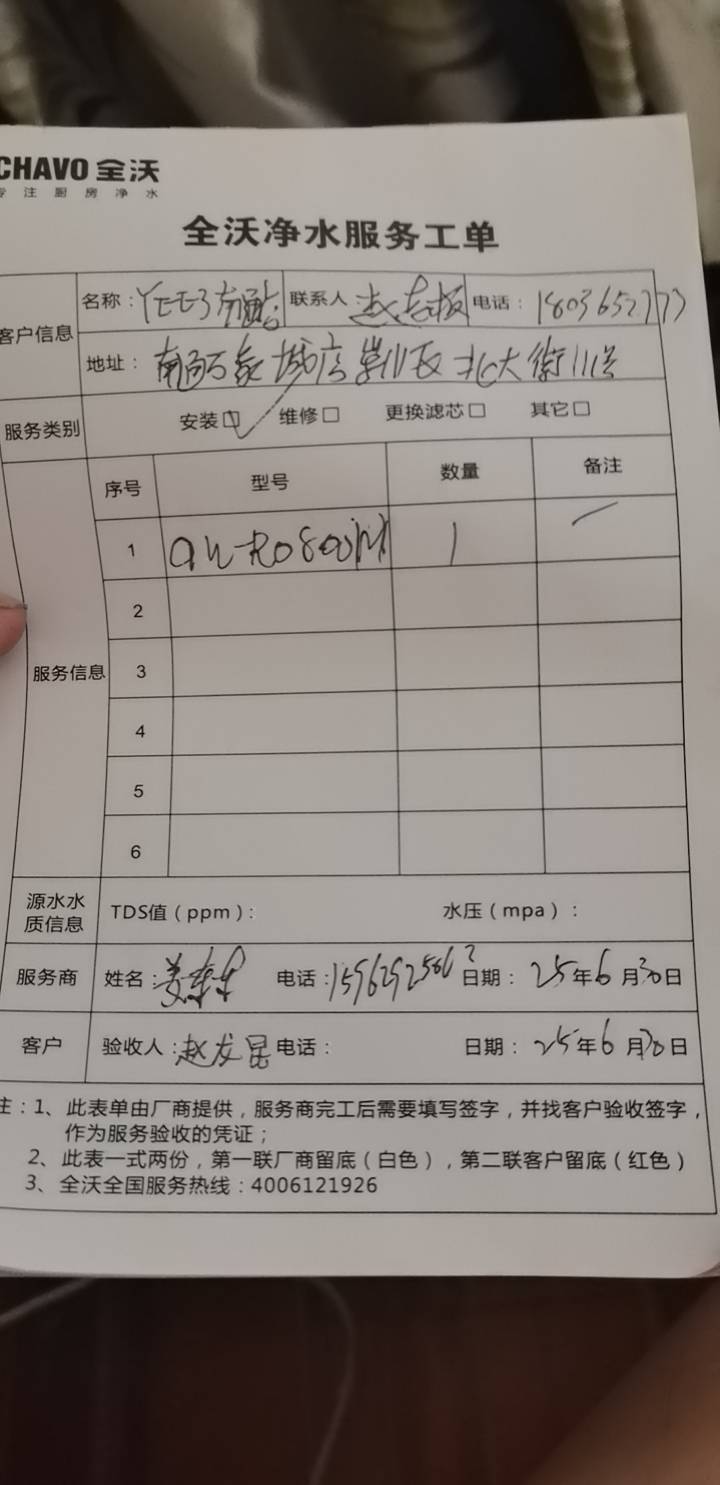 CHAVO 全沃
专注厨房净水
全沃净水服务工单
客户信息 名称: 联系人 赵 电话: 180365
地址: 南通万象城店崇川区北大街111号
服务类别 安装□ 维修□ 更换滤芯□ 其它□
服务信息 序号 型号 数量 备注
1 QW-RO800 1
2
3
4
5
6
源水水质信息 TDS值(ppm): 水压(mpa):
服务商 姓名: 姜 电话: 日期: 25年6月30日
客户 验收人: 赵龙昆 电话: 日期: 25年6月30日
注:1、此表单由厂商提供,服务商完工后需要填写签字,并找客户验收签字,
作为服务验收的凭证;
2、此表一式两份,第一联厂商留底(白色),第二联客户留底(红色)
3、全沃全国服务热线:4006121926